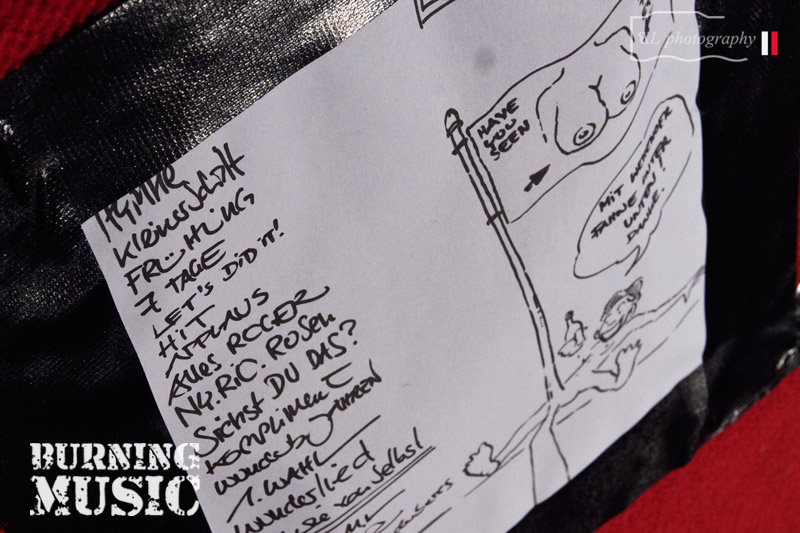 BL photography
HYMNE
Kleiner Schritt
FRÜHLING
7 TAGE
LET'S DID IT!
HIT
APPLAUS
Alles ROGER
NY. RiC. ROSEN
Siehst DU DAS?
Kompliment
1. WAHL
Wunderlied
wie von selbst
HAVE
YOU
SEEN
MIT WEHENDER
FAHNE UNTER
UNTEN!
DANKE.
BURNING
MUSIC